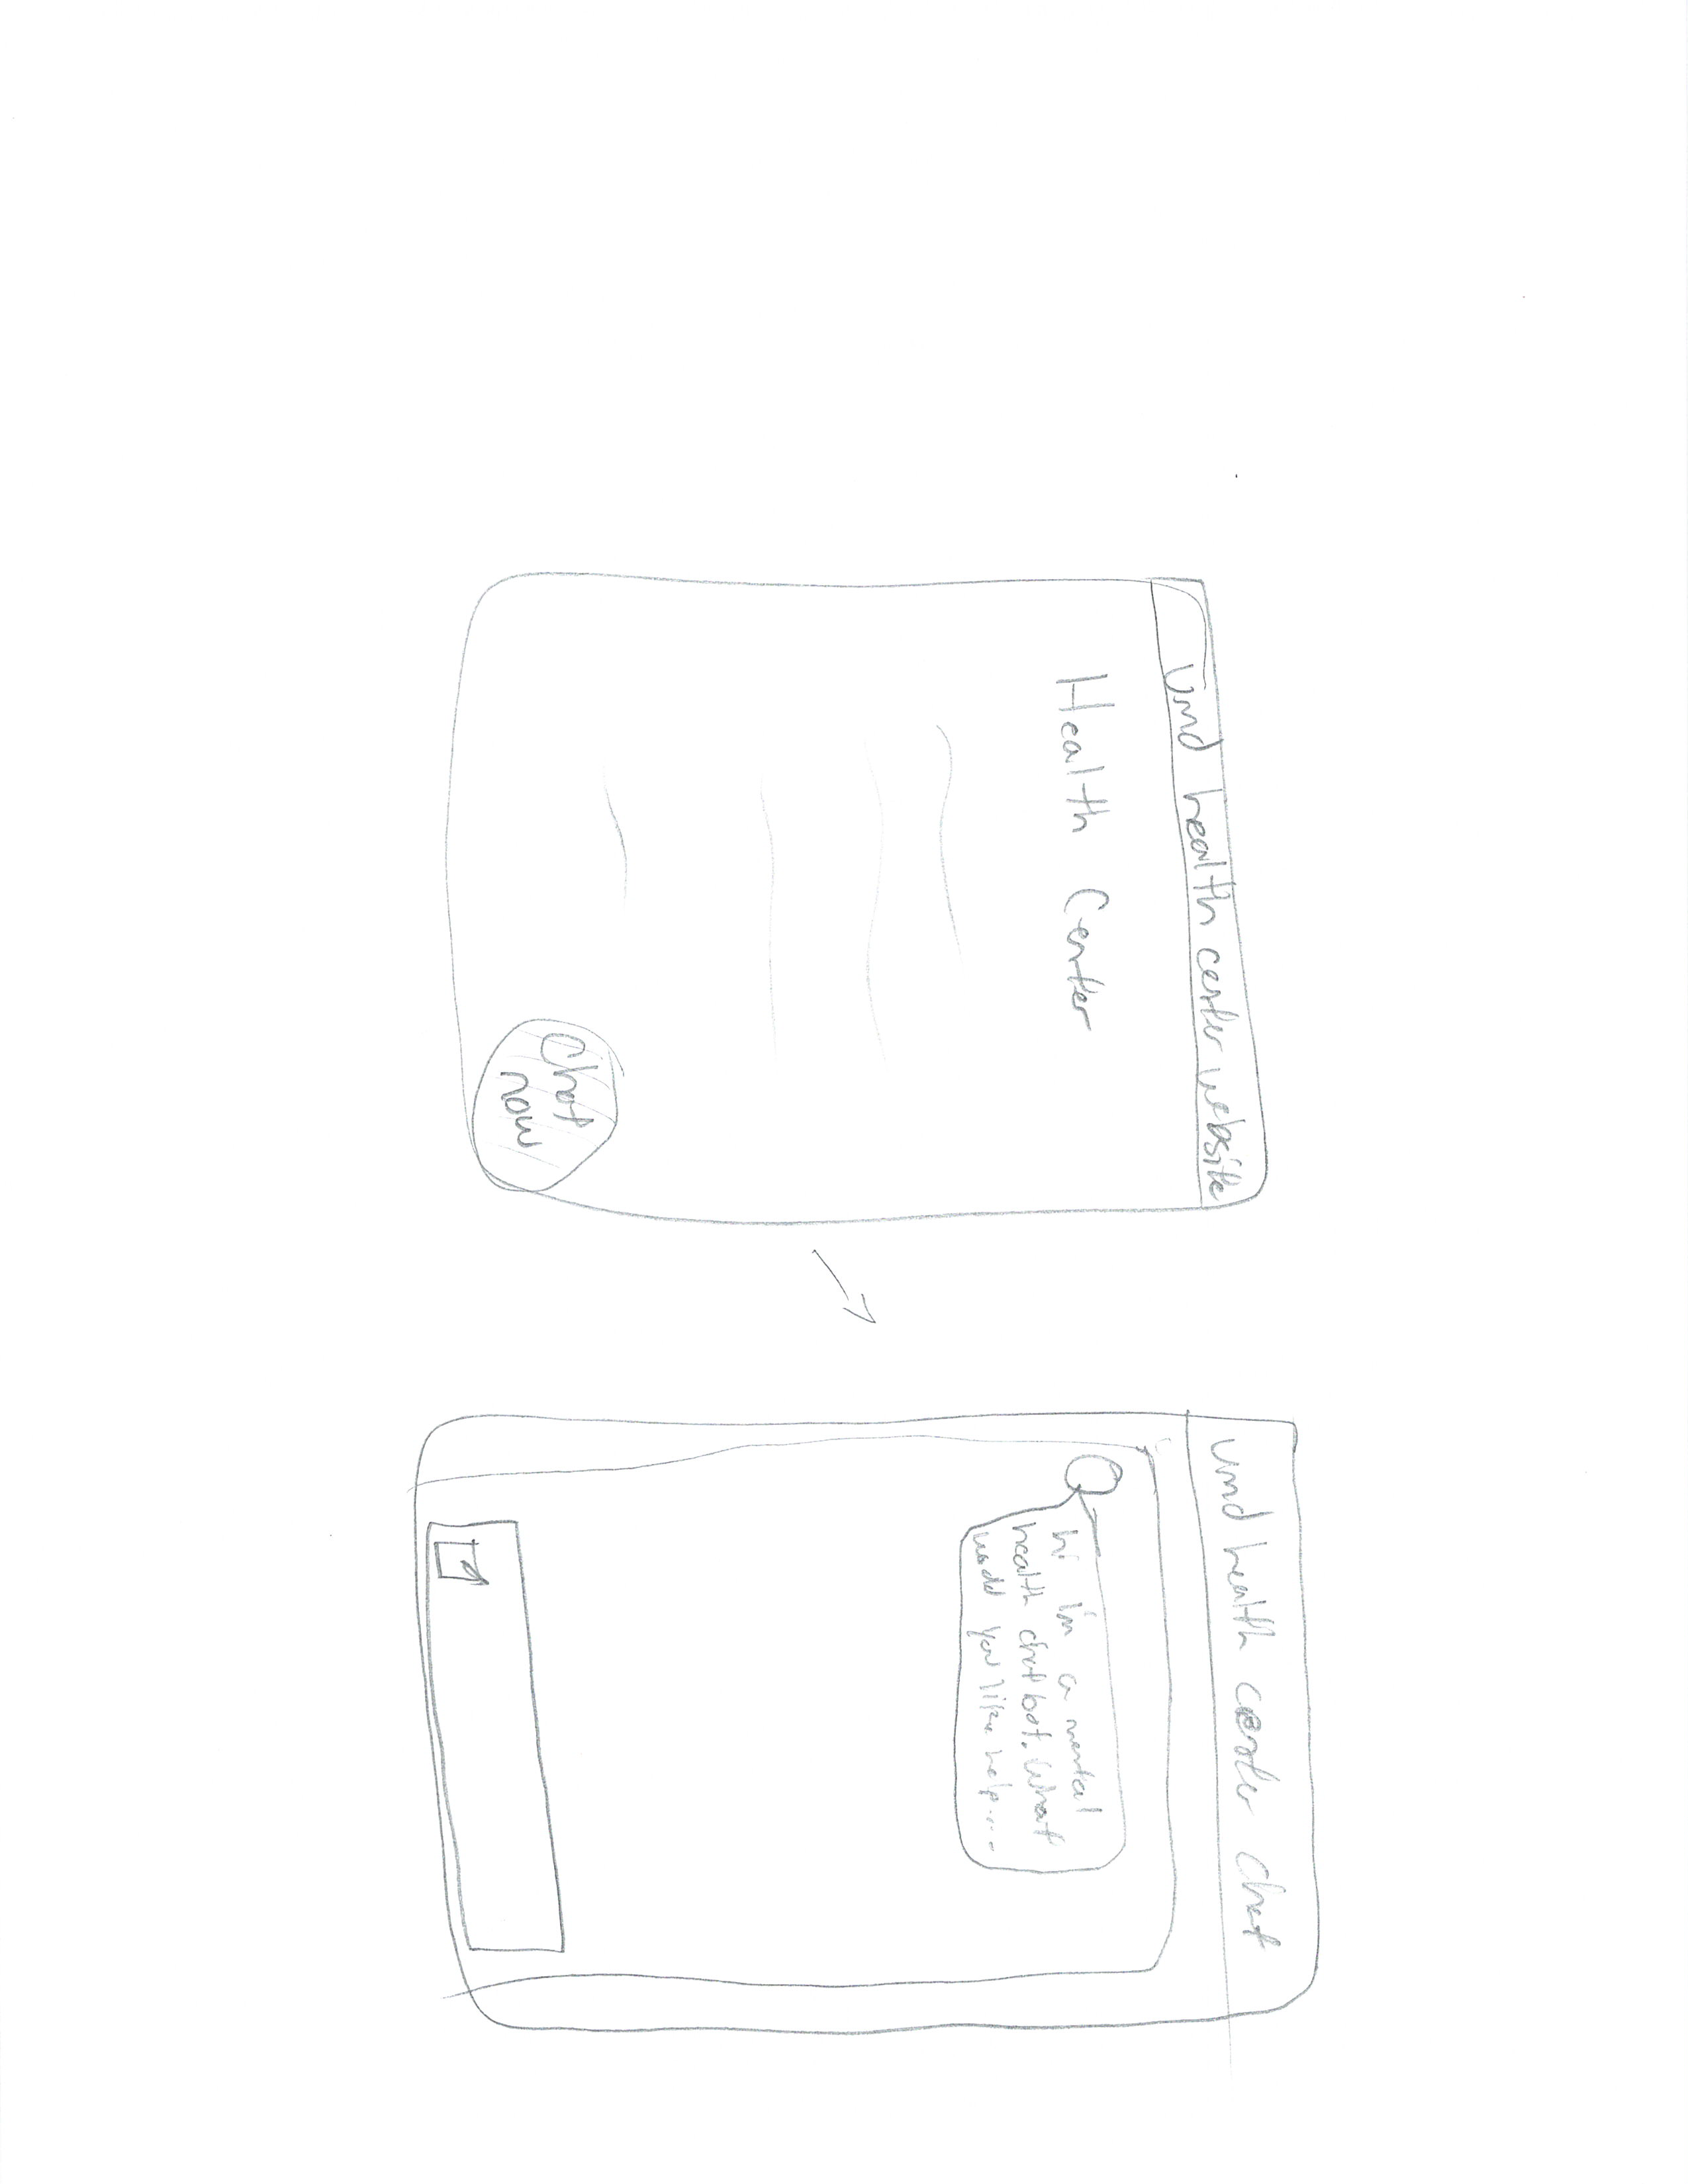 Umd health center website
Health Center
Chat
now
Umd health center chat
hi im a mental
health chatbot. What
would you like help....